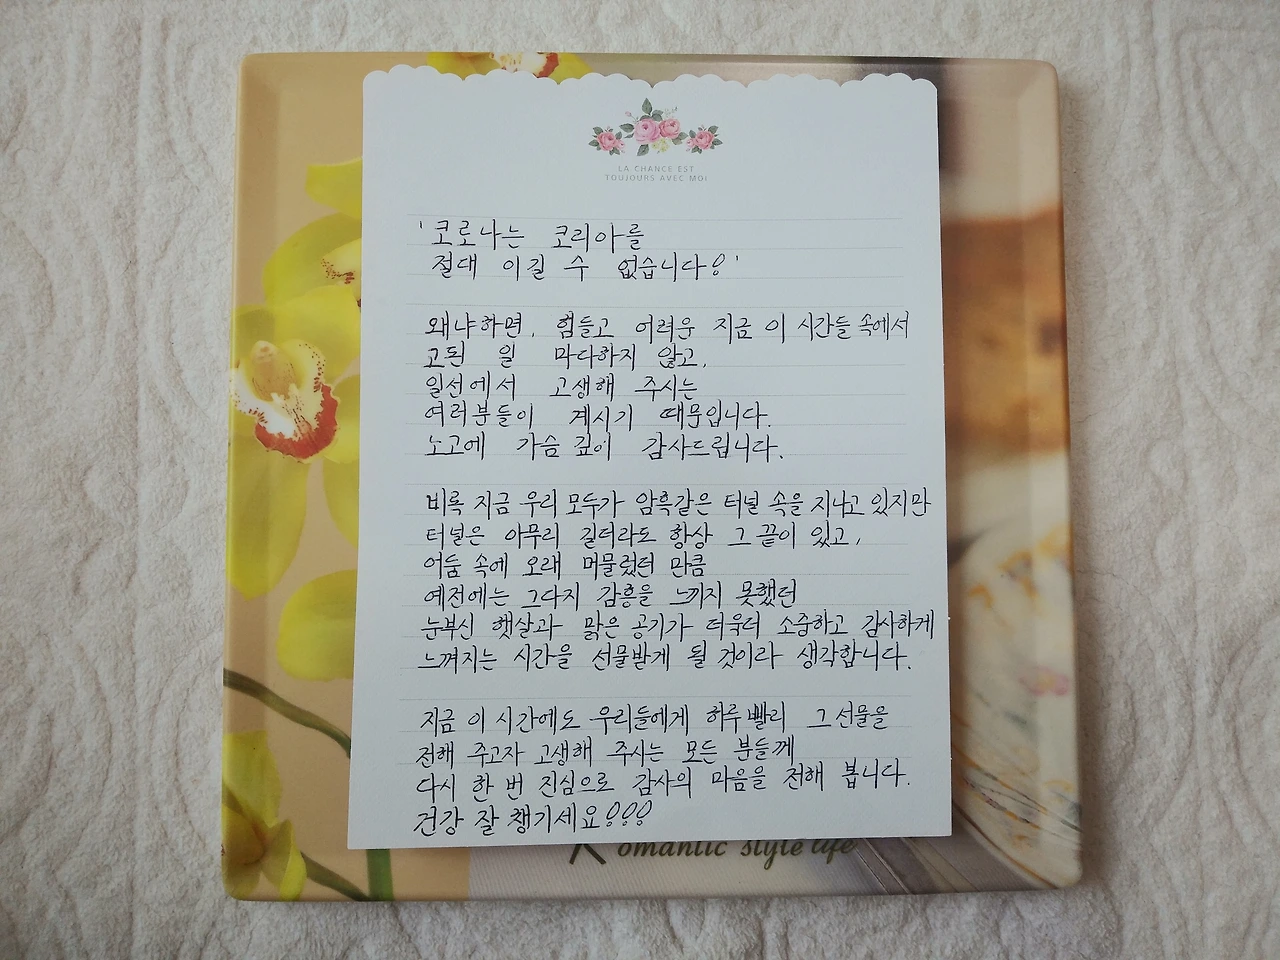 LA CHANCE EST
TOUJOURS AVEC MOI
'코로나는 코리아를
절대 이길 수 없습니다!'
왜냐하면, 힘들고 어려운 지금 이 시간들 속에서
고된 일 마다하지 않고,
일선에서 고생해 주시는
여러분들이 계시기 때문입니다.
노고에 가슴 깊이 감사드립니다.
비록 지금 우리 모두가 암흑같은 터널 속을 지나고 있지만
터널은 아무리 길더라도 항상 그 끝이 있고,
어둠 속에 오래 머물렀던 만큼
예전에는 그다지 감흥을 느끼지 못했던
눈부신 햇살과 맑은 공기가 더욱더 소중하고 감사하게
느껴지는 시간을 선물받게 될 것이라 생각합니다.
지금 이 시간에도 우리들에게 하루 빨리 그 선물을
전해 주고자 고생해 주시는 모든 분들께
다시 한 번 진심으로 감사의 마음을 전해 봅니다.
건강 잘 챙기세요!!!
Romantic style life